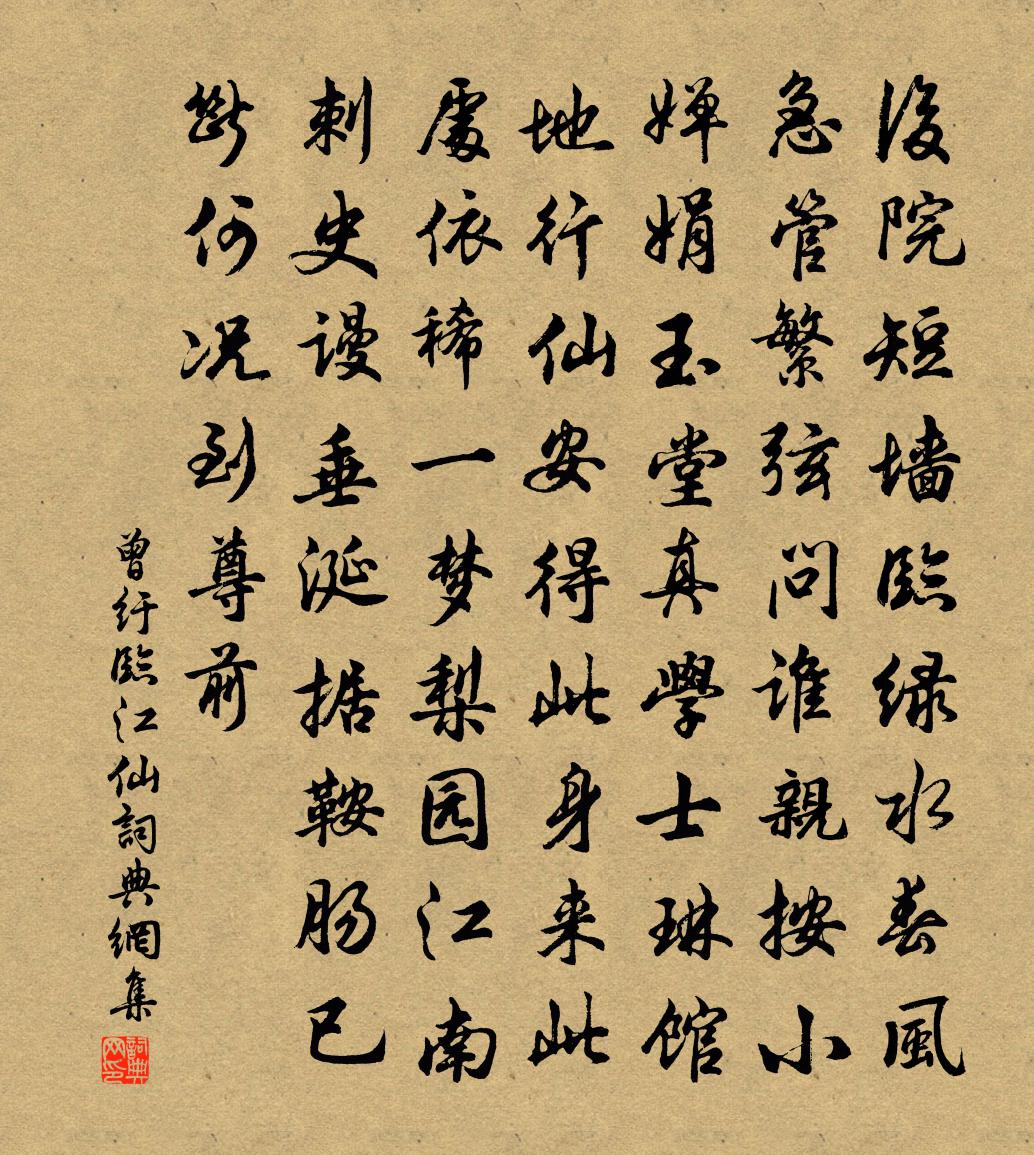 後院短墙臨绿水春風
急管繁弦問谁親按小
婵娟玉堂真學士琳馆
地行仙安得此身来此
處依稀一梦梨园江南
刺史谩垂涎据鞍肠已
断何况到尊前
曾纡臨江仙詞典網集
詞典网印